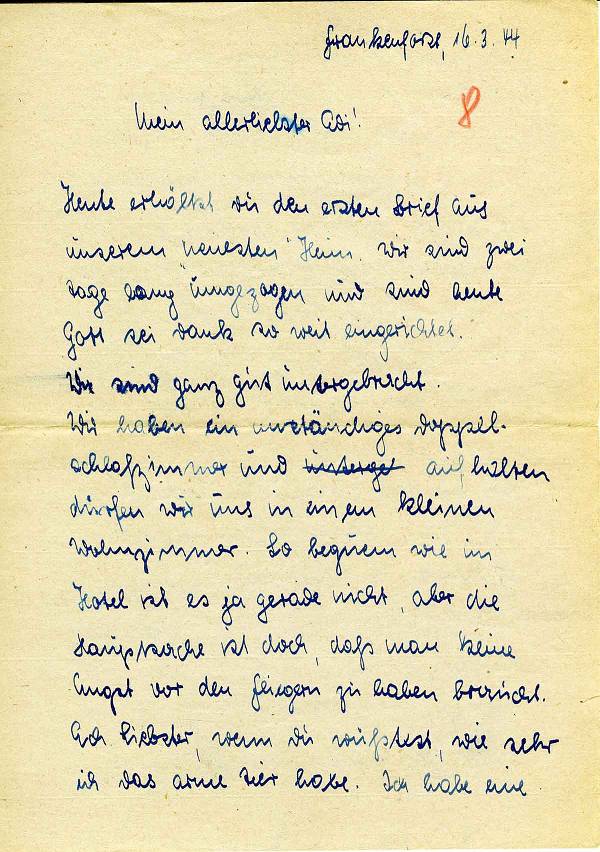 Frankenforst, 16.3.44
8
Mein allerliebster Adi!
Heute erhältst du den ersten Brief aus
unserem "neuesten" Heim. Wir sind zwei
Tage lang umgezogen und sind heute
Gott sei dank so weit eingerichtet.
Wir sind ganz gut untergebracht.
Wir haben ein anständiges Doppel-
schlafzimmer und unterget aufhalten
dürfen wir uns in einem kleinen
Wohnzimmer. So bequem wie im
Hotel ist es ja gerade nicht, aber die
Hauptsache ist doch, daß man keine
Angst vor den Fliegern zu haben braucht.
Ach liebster, wenn du wüßtest, wie sehr
ich das arme Tier habe. Ich habe eine